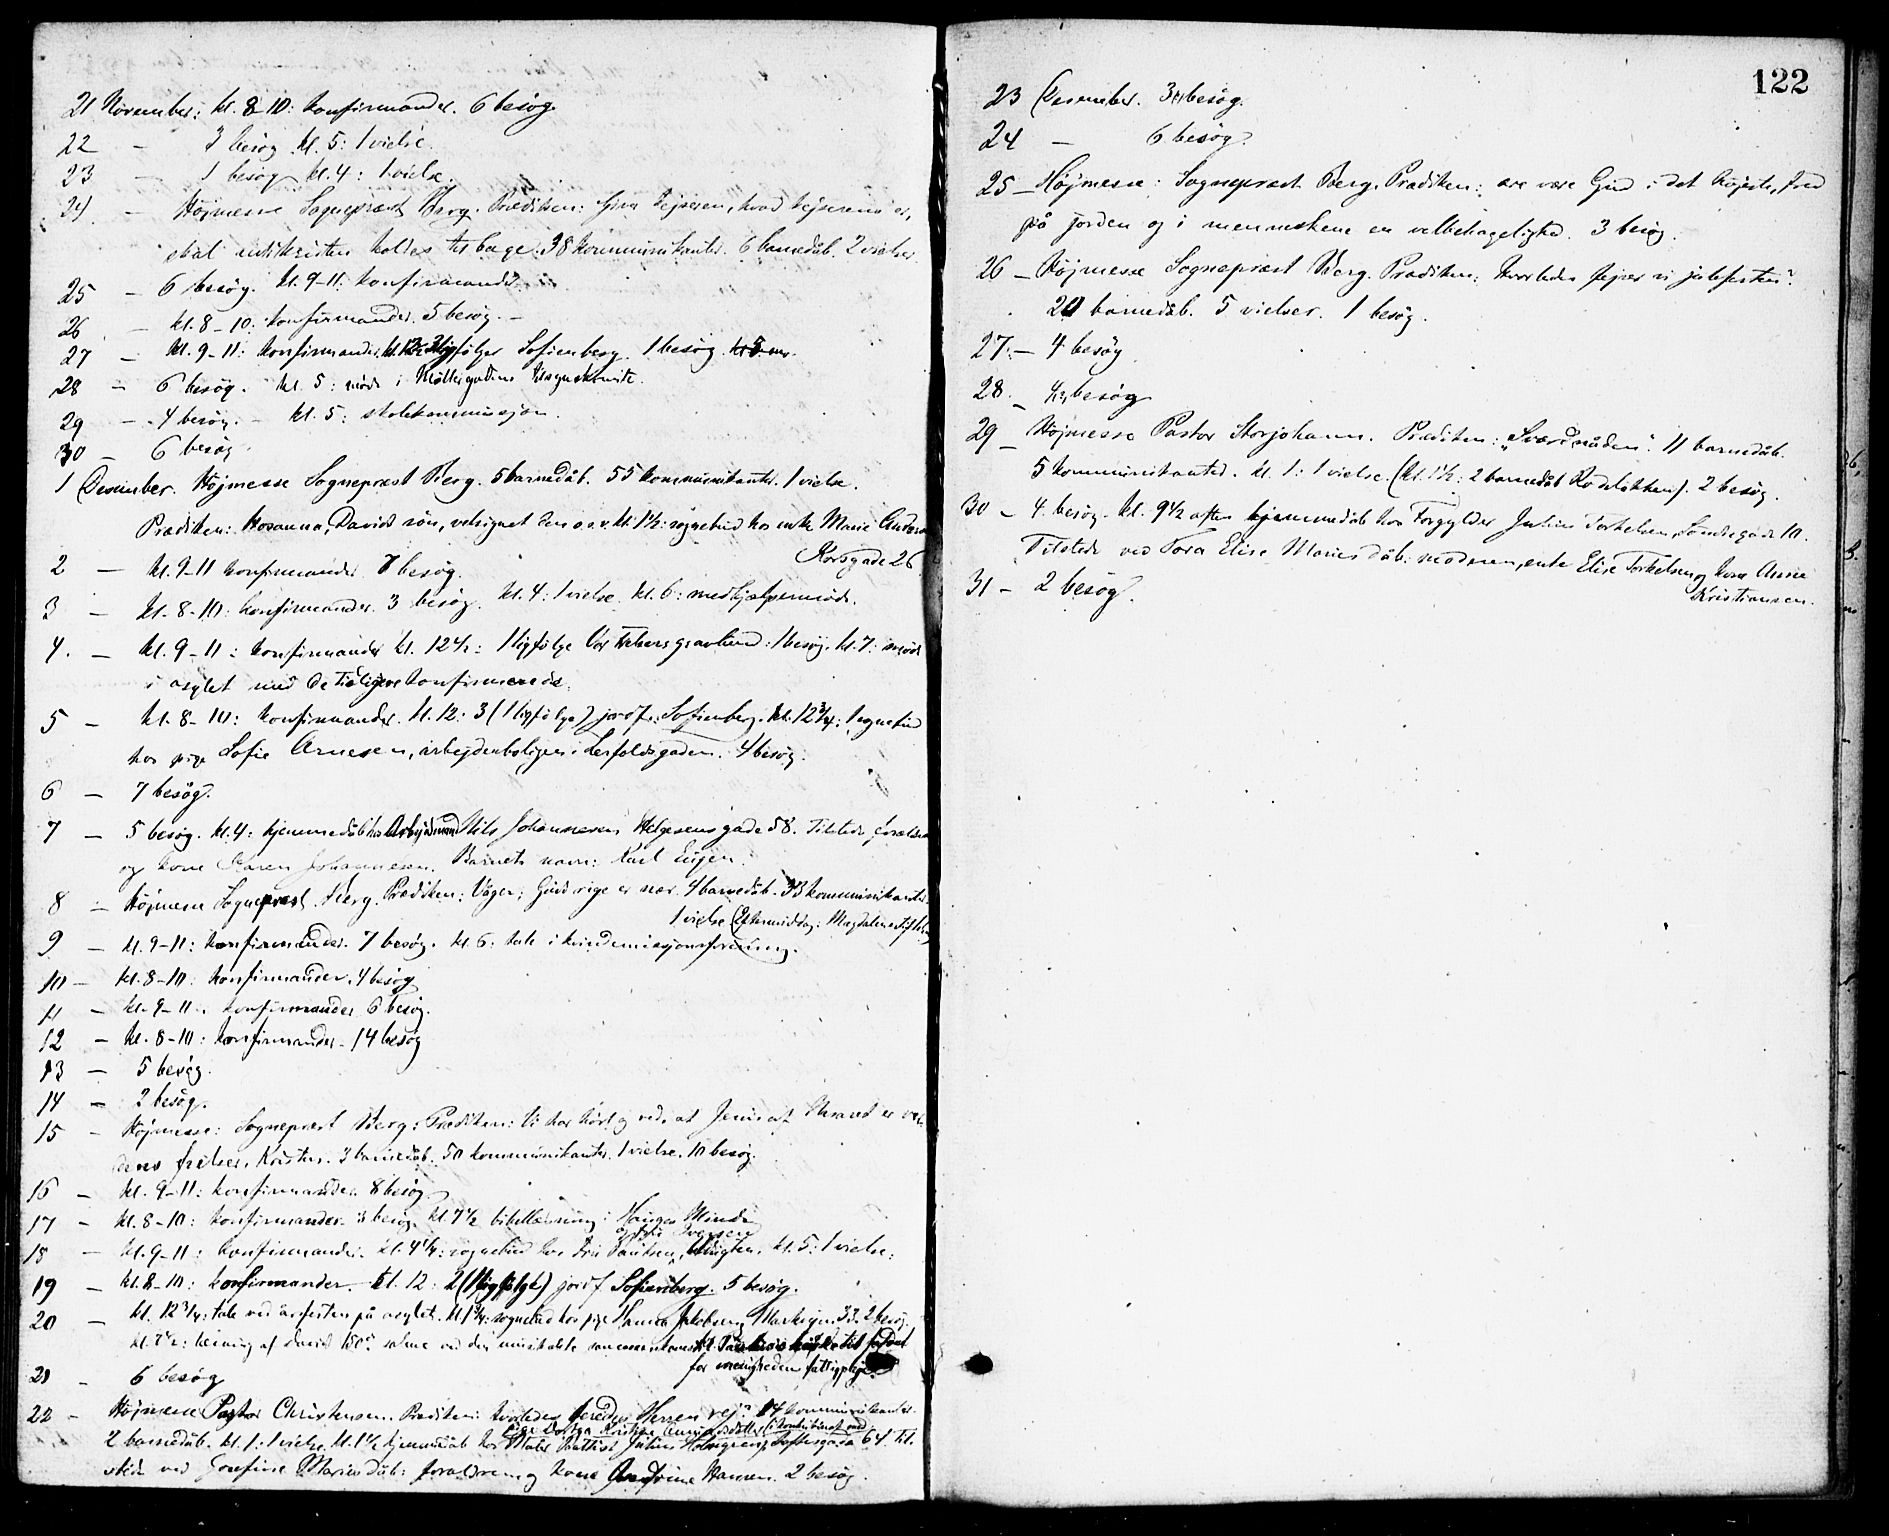 21 November: kl. 8-10: konfirmander. 6 besøg
22 - 3 besøg kl. 5: 1 vielse.
23 - 1 besøg kl. 4: 1 vielse.
24 - Højmesse Sogneprest Berg. Prædiken: Giv kejseren, hvad kejserens er,
skal antikristen holdes tilbage. 38 kommunikanter. 6 barnedåb. 2 vielser.
25 - 6 besøg. kl. 9-11: konfirmander
26 - kl. 8-10: konfirmander. 5 besøg. -
27 - kl. 9-11: konfirmander. ligfølge Sofienberg. 1 besøg.
28 - 6 besøg. kl. 5: møde i Møllergadens tilsynskomite.
29 - 4 besøg. - kl. 5: skolekommissjon.
30 - 6 besøg.
1 Desember. Højmesse Sogneprest Berg. 5 barnedåb. 55 kommunikanter. 1 vielse.
Prædiken: Hosanna, Davids søn, velsignet den o.s.v. kl. 1½: sognebud hos enke Marie
Korsgade 26
2 - kl. 9-11 konfirmander 7 besøg.
3 - kl. 8-10: konfirmander. 3 besøg. kl. 4: 1 vielse kl. 6: medhjælpermøde.
4. - kl. 9-11: konfirmander kl. 12½: 1 ligfølge Vor Frelsers gravlund: 1 besøg. kl. 7: møde
i asylet med de tidligere konfirmerede.
5 - kl. 8-10: konfirmander. kl. 12: 3 (1 ligfølge) jordf. Sofienberg. kl. 12¾: 1 sognebud
hos pige Sofie Arnesen, arbejderboligen i Herfoldsgaden. 4 besøg.
6 - 7 besøg.
7 - 5 besøg. kl. 4: hjemmedåb hos Arbejdsmand Nils Johannesen Helgesens gade 58. Tilstede forældrene
og kone Karen Johannesen. Barnets navn: Karl Eugen.
8 - Højmesse Sogneprest Berg. Prædiken: Våger; Guds rige er nær. 4 barnedåb. 33 kommunikanter.
1 vielse (Eftermiddag: Magdalenestiftelsen)
9 - kl. 9-11: konfirmander. 7 besøg. kl. 6: tale i kvindemissjonsforening.
10 - kl. 8-10: konfirmander. 4 besøg
11 - kl. 9-11: konfirmander 6 besøg.
12 - kl. 8-10: konfirmander - 14 besøg
13 - 5 besøg.
14 - 2 besøg.
15 - Højmesse: Sogneprest Berg. Prædiken: Vi har hørt og ved, at Jesus af Nazaret er ver-
dens frelser, Kristus. 3 barnedåb. 50 kommunikanter. 1 vielse. 10 besøg.
16 - kl. 9-11: konfirmander. 8 besøg.
17 - kl. 8-10: konfirmander. 3 besøg. kl. 7½ bibellæsning i Hauges Minde
og frk. Iversen
18 - kl. 9-11: konfirmander. kl. 4¼: sognebud hos Fru Paulsen, kl. 5: 1 vielse.
19 - kl. 8-10: konfirmander. kl. 12: 2 (1 ligfølge) jordf Sofienberg. 5 besøg.
20 - kl. 12¾: tale ved årsfesten på asylet. kl. 1¾: sognebud hos pige Hanna Jakobsen, Markvejen 33. 2 besøg.
kl. 7½: læsning af Davids 150de salme ved den musikalske sammenkomst til fordel
for menighedens fattigpleje.
21 - 6 besøg
22 - Højmesse Pastor Christensen. Prædiken: hvorledes beredes Herren vej? 14 kommunikanter.
2 barnedåb. kl. 1: 1 vielse. kl. 1½ hjemmedåb hos Maler Julius Holmgren, Toftesgade 64. Til-
stede ved Josefine Maries dåb: forældrene og kone Hansen. 2 besøg.
122
23 Desember. 3 besøg.
24 - 6 besøg.
25 - Højmesse: Sogneprest Berg. Prædiken: ære være Gud i det højeste, fred
på jorden og i menneskene en velbehagelighed. 3 besøg.
26 - Højmesse Sogneprest Berg. Prædiken: Hvorledes fejrer vi julefesten?
20 barnedåb. 5 vielser. 1 besøg.
27. - 4 besøg
28. - 4 besøg
29 - Højmesse Pastor Storjohann. Prædiken: "Sværdmåden". 11 barnedåb.
5 kommunikanter. kl. 1: 1 vielse. (kl. 1½: 2 barnedåb Rodeløkken). 2 besøg.
30 - 4 besøg. kl. 9½ aften hjemmedåb hos Forgylder Julius Torkelsen, Søndregade 10.
Tilstede ved Tora Elise Maries dåb: moderen, enke Elise Torkelsen og kone Anne
Kristiansen.
31 - 2 besøg.